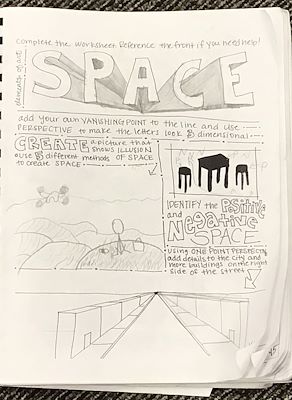 complete the worksheet. Reference the front if you need help!
elements of art
SPACE
add your own VANISHING POINT to the line and use
PERSPECTIVE to make the letters look 3 dimensional
CREATE a picture that
shows ILLUSION
use 3 different methods of SPACE
to create SPACE
IDENTIFY the POSITIVE
and Negative
SPACE
using ONE POINT PERSPECTIVE,
add details to the city and
more buildings on the right
side of the street